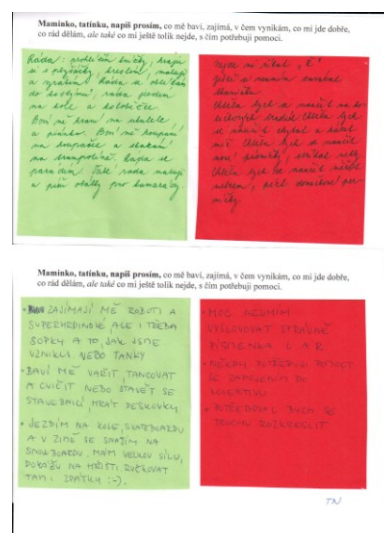 Maminko, tatínku, napiš prosím, co mě baví, zajímá, v čem vynikám, co mi jde dobře,
co rád dělám, ale také co mi ještě tolik nejde, s čím potřebuji pomoci.
Ráda: prohlížím knížky, hraju
si s plyšáky, kreslím, maluji
a vyrábím. Ráda se oblékám
do kostýmů, ráda jezdím
na kole a koloběžce.
Baví mě hraní na ukulele
a piánko. Baví mě koupání
na koupališti a skákání
na trampolíně. Ráda se
parádím. Také ráda maluji
a píši obálky pro kamarády.
Nejde mi říkat „Ř"
Ještě si neumím zavázat
tkaničku.
Chtěla bych se naučit na ko-
lečkových bruslích. Chtěla bych
se naučit chytat a házet
míč. Chtěla bych se naučit
nové písničky,
Chtěla bych se naučit
péct domácí per-
níčky.
Maminko, tatínku, napiš prosím, co mě baví, zajímá, v čem vynikám, co mi jde dobře,
co rád dělám, ale také co mi ještě tolik nejde, s čím potřebuji pomoci.
• ZAJÍMAJÍ MĚ ROBOTI A
SUPERHRDINOVÉ ALE I TŘEBA
SOPKY A TO, JAK JSME
VZNIKLI NEBO TANKY
• BAVÍ MĚ VAŘIT, TANCOVAT
A CVIČIT NEBO STAVĚT SE
STAVEBNICÍ, HRÁT DESKOVKY
• JEZDÍM NA KOLE, SKATEBOARDU
A V ZIMĚ SE SNAŽÍM NA
SNOWBOARDU. MÁM VELKOU SÍLU,
DOKÁŽU NA HŘIŠTI RUČKOVAT
TAM I ZPÁTKY :-).
• MOC NEUMÍM
VYSLOVOVAT SPRÁVNĚ
PÍSMENKA L A R
• NĚKDY POTŘEBUJI POMOCT
SE ZAPOJENÍM DO
KOLEKTIVU
• POTŘEBOVAL BYCH SE
TROCHU ROZKRESLIT